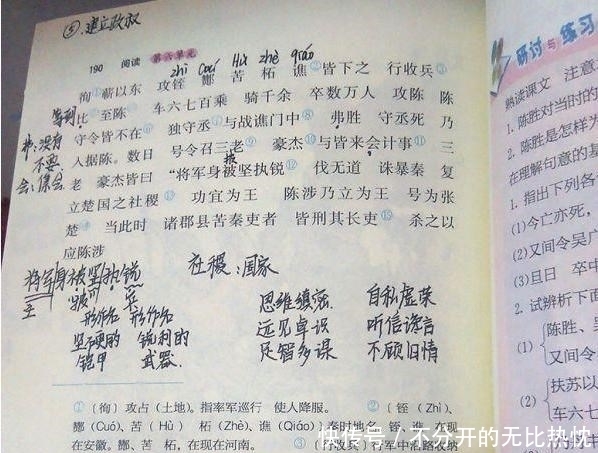 ⑤建立政权
190 阅读 第六单元
zhì Cuó Hù zhè qiáo
徇①蕲以东 攻铚 酂 苦 柘 谯②皆下之 行收兵③
等到
比④至陈 车六七百乘 骑千余 卒数万人 攻陈 陈
书:没有
守令皆不在 独守丞⑦与战谯门中⑧ 弗胜 守丞死 乃
不要
入据陈。数日 号令召三老⑨ 豪杰⑩与皆来会计事⑪ 三
会:集会
披
老 豪杰皆曰 “将军身被坚执锐⑫ 伐无道 诛暴秦 复
立楚国之社稷⑬ 功宜为王 陈涉乃立为王 号为张
楚⑭ 当此时 诸郡县苦秦吏者 皆刑其长吏⑮ 杀之以
应陈涉
将军身被坚执锐 社稷:国家
主 披 兵
形作名 形作名
坚硬的 锐利的
铠甲 武器
思维缜密 自私虚荣
远见卓识 听信谗言
足智多谋 不顾旧情
①〔徇〕攻占(土地)。指率军巡行 使人降服。 ②〔铚(Zhì)、
酂(Cuó)、苦(Hù) 柘(Zhè)、谯(Qiáo)〕秦时地名。铚 谯 在现
在安徽。酂、苦 柘,在现在河南。
③〔行收兵〕行军中沿路收纳
研讨与练习
熟读课文 注意
1. 陈胜对当时的
2. 陈胜是怎样为
在理解句意的基
1. 指出下列各
(1)今亡亦死,
(2)又间令吴广
(3)旦日 卒中
2. 试辨析下面
(1) 陈胜、吴
又间令
(2) 扶苏以
车六七
快传号/不分开的无比热忱